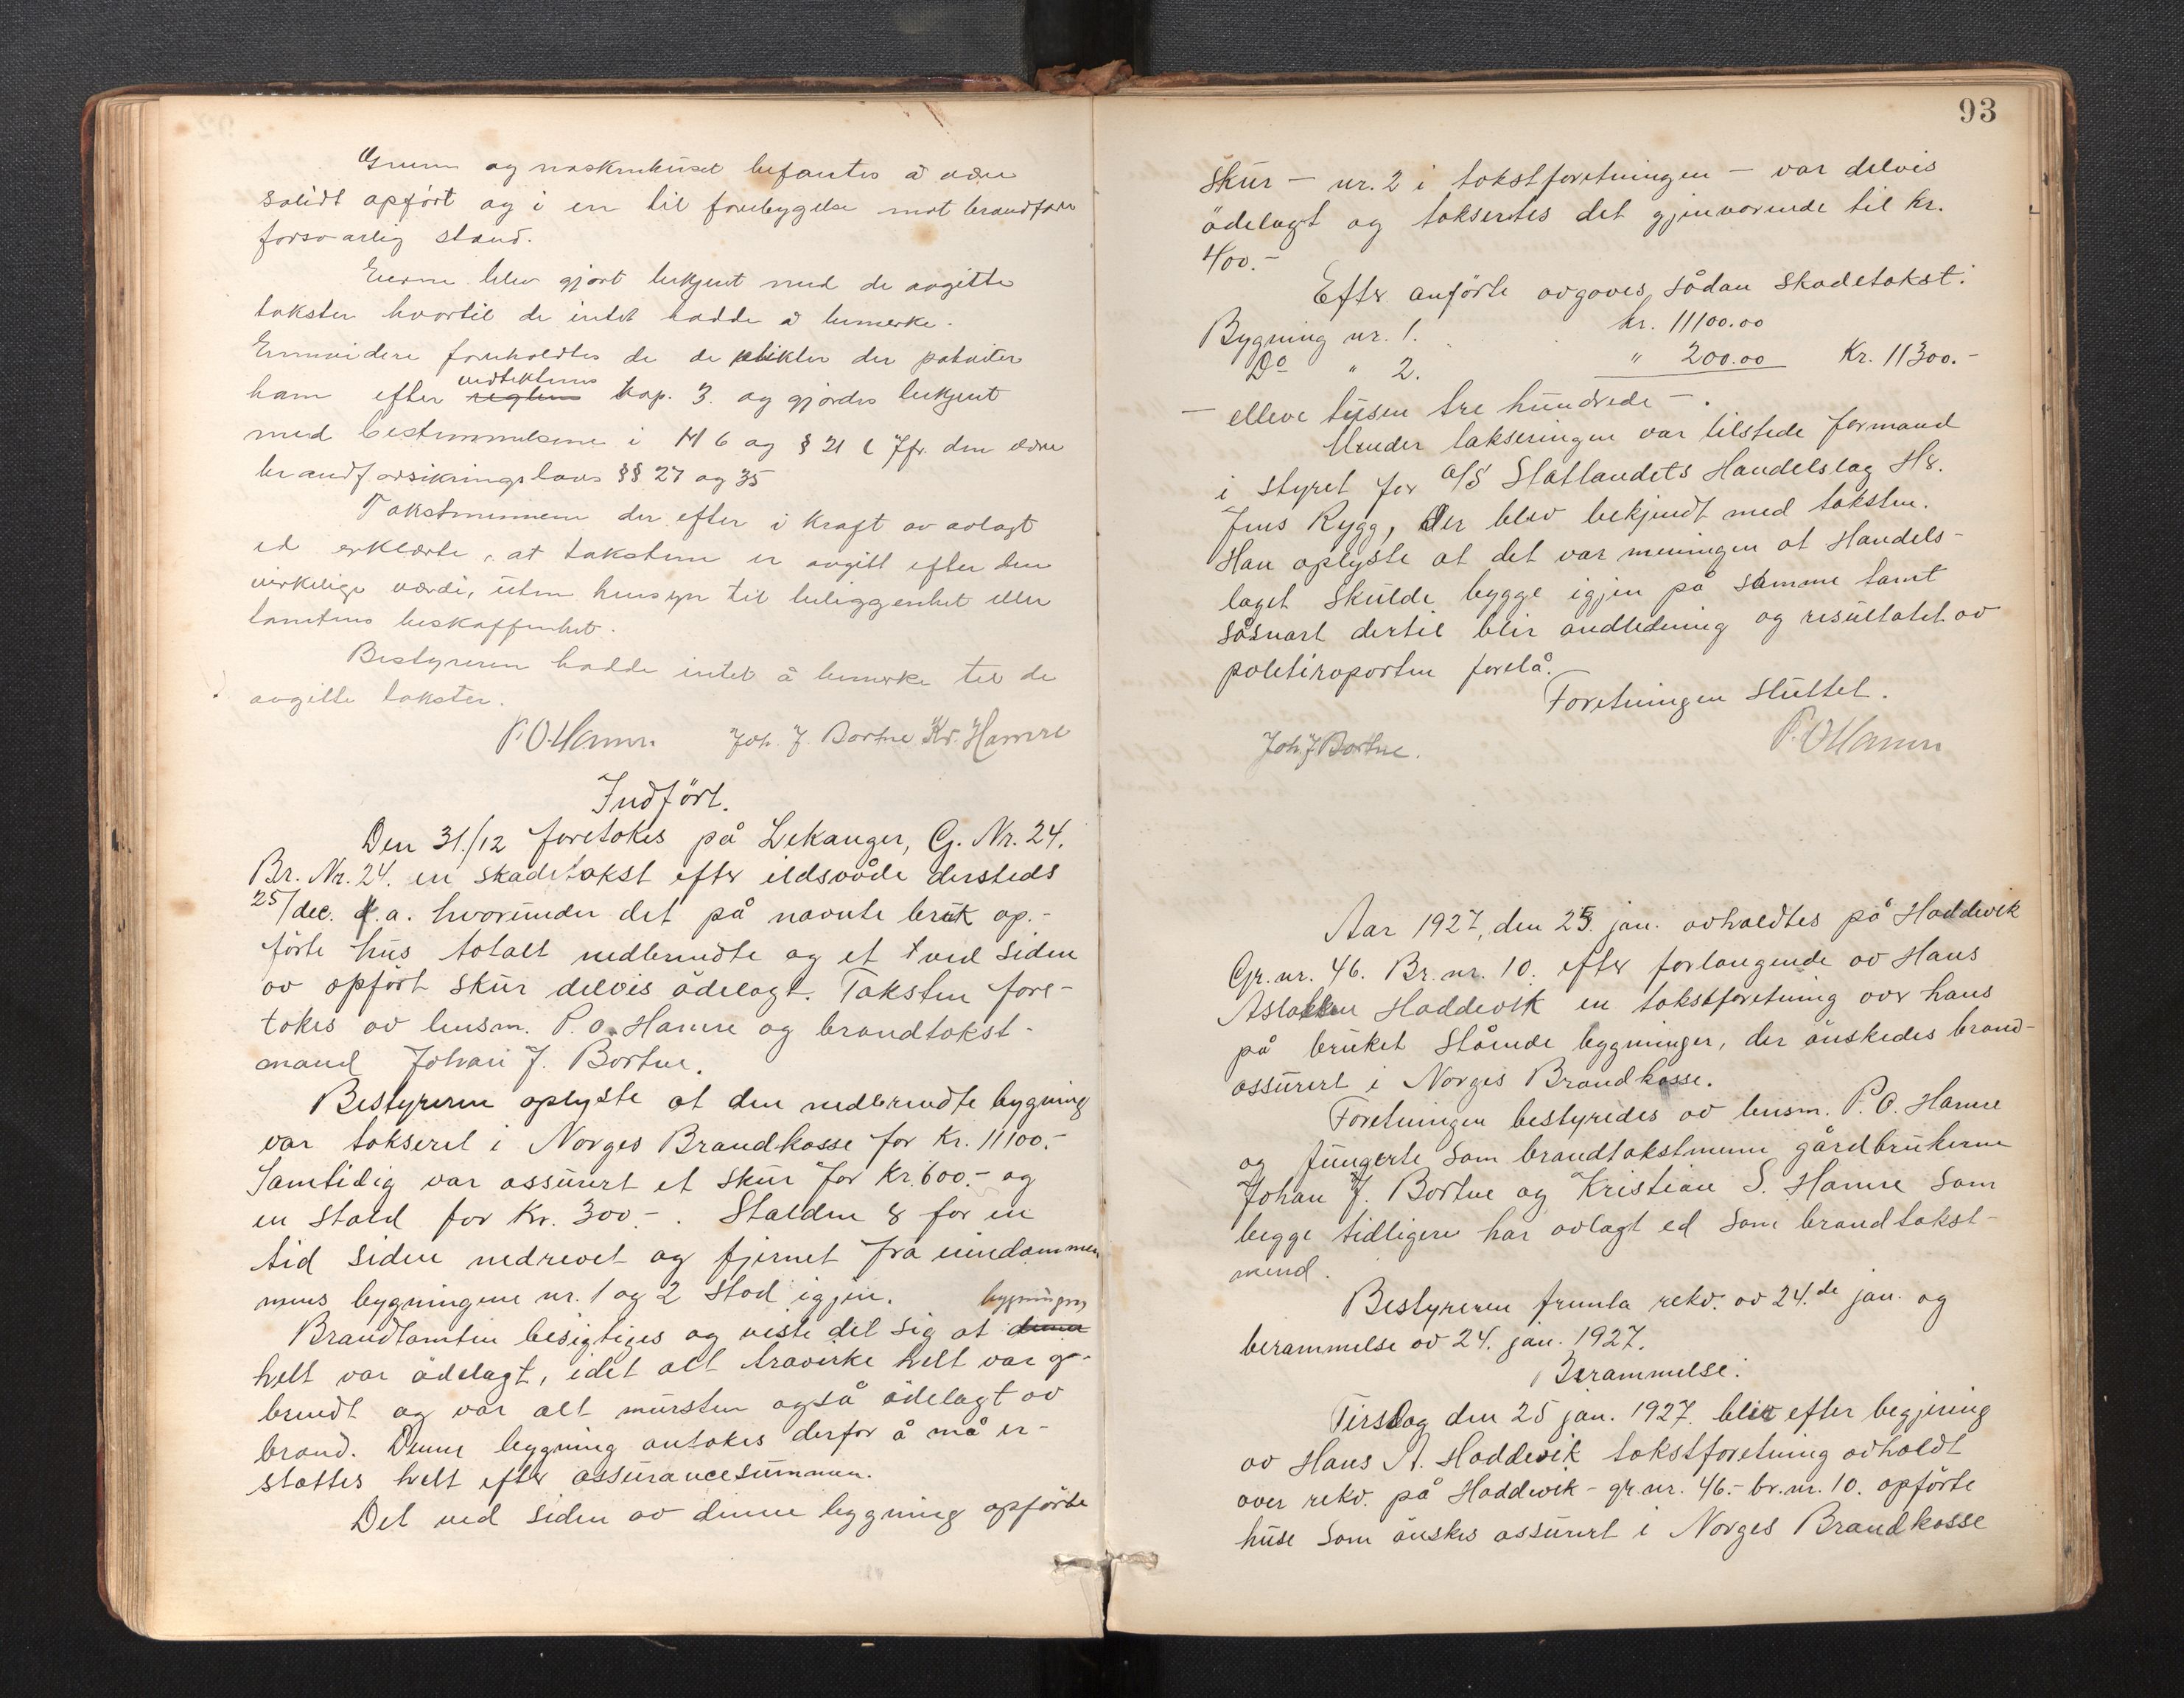 Grunn og maskinhuset befantes å være
solidt opført og i en til forebygelse mot brandfare
forsvarlig stand.
Eierne blev gjort bekjent med de avgitte
takster hvortil de intet hadde å bemerke.
Ennvidere foreholdtes de de plikter der påhviler
ham efter vedtektenes kap. 3. og gjordes bekjent
med bestemmelsene i § 6 og § 21 Jfr. den
brandforsikringslovs §§ 27 og 35
Takstmennene der efter i kraft av avlagt
ed erklærte, at taksten er avgitt efter den
virkelige værdi, uten hensyn til beliggenhet eller
tomtens beskaffenhet.
Bestyreren hadde intet å bemerke til de
avgitte takster.
P. O. Hamre. Joh. J. Bortne Kr. Hamre
Indført.
Den 31./12 foretokes på Leikanger, G. Nr. 24.
Br. Nr. 24. en skadetakst efter ildsvåde dersteds
25/dec. d.a. hvorunder det på navnte bruk op-
førte hus totalt nedbrendte og et ved siden
av opført skur delvis ødelagt. Taksten fore-
tokes av lensm. P. O. Hamre og brandtakst-
mand Johan J. Bortne.
Bestyreren oplyste at den nedbrendte bygning
var taksert i Norges Brandkasse for Kr. 11100.-
Samtidig var assurert et skur for Kr. 600.- og
en stald for Kr. 300.-. Stalden er for en
tid siden nedrevet og fjernet fra eiendommen
mens bygningene nr. 1 og 2 stod igjen.
bygningen
Brandtomten besigtiges og viste det sig at denne
helt var ødelagt, idet alt traverke helt var op-
brendt og var alt mursten også ødelagt av
brand. Denne bygning antakes derfor å må er-
stattes helt efter assurancesummen.
Det ved siden av denne bygning opførte
93
skur - nr. 2 i takstforetningen - var delvis
ødelagt og taksertes det gjenværende til kr.
400.-
Efter anførte avgaves sådan skadetakst:
Bygning nr. 1. kr. 11100.00
Do " 2. " 200.00 Kr. 11300.-
- elleve tusen tre hundrede -.
Under takseringen var tilstede formand
i styret for A/S Statlandets Handelslag Hr.
Jens Rygg, der blev bekjendt med taksten.
Han oplyste at det var meningen at Handels-
laget skulde bygge igjen på samme tomt
såsnart dertil blir andledning og resultatet av
politiraporten forelå.-
Foretningen sluttet.
Joh. J. Bortne. P. O. Hamre
Aar 1927, den 25. jan. avholdtes på Hoddevik
Gr. nr. 46. Br. nr. 10. efter forlangende av Hans
Aslaksen Hoddevik en takstforetning over hans
på bruket stående bygninger, der ønskedes brand-
assurert i Norges Brandkasse.
Foretningen bestyredes av lensm. P. O. Hamre
og fungerte som brandtakstmenn gårdbrukerne
Johan J. Bortne og Kristian S. Hamre som
begge tidligere har avlagt ed som brandtakst-
mend.
Bestyreren fremla rekv. av 24.de jan. og
berammelse av 24. jan. 1927.
Berammelse:
Tirsdag den 25 jan. 1927. blir efter begjering
av Hans A. Hoddevik takstforetning avholdt
over rekv. på Hoddevik - gr. nr. 46.- br. nr. 10. opførte
huse som ønskes assurert i Norges Brandkasse